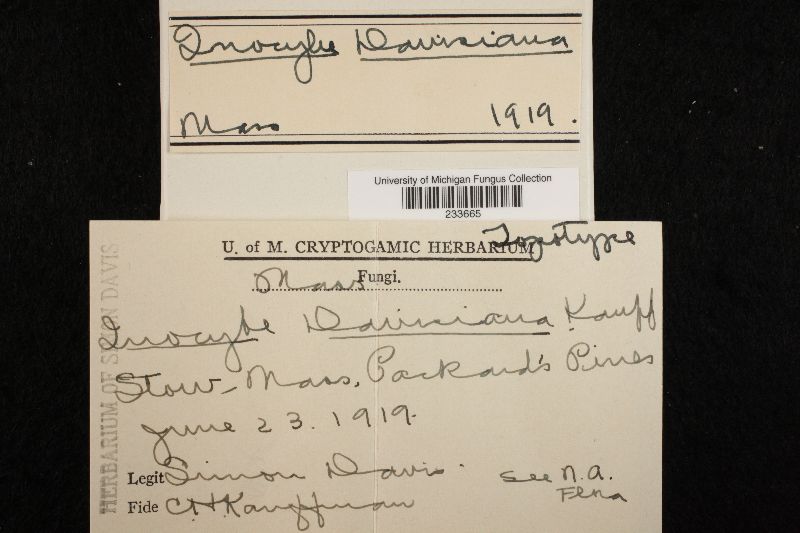 Inocybe Davisiana
Mass 1919.
University of Michigan Fungus Collection
233665
Topotype
U. of M. CRYPTOGAMIC HERBARIUM
Fungi.
Mass
Inocybe Davisiana Kauff
Stow - Mass. Packard's Pines
June 23. 1919.
Legit Simon Davis.
See N.A.
Flora
Fide CHKauffman
HERBARIUM OF SIMON DAVIS